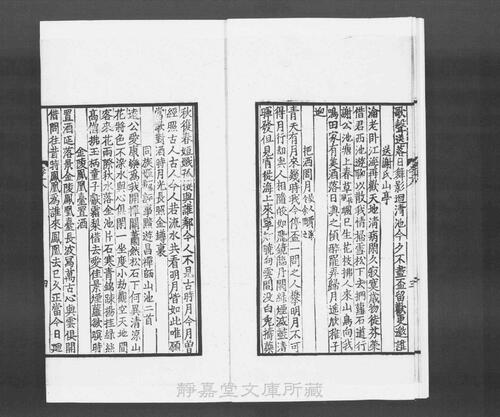 歌聲送落日舞影迴清池今夕不盡盃留歡更邀誰
送謝氏山亭
淪老卧江海再歡天地清病閑久寂寞歳物徒芬榮
借君西池遊聊以散我情掃雪松下去捫蘿石道行
謝公池塘上春草颯已生花枝拂人來山鳥向我
鳴田家有美酒落日與之傾醉罷弄歸月遙欣稚子
迎
把酒問月
青天有月來幾時我今停盃一問之人攀明月不可
得月行却與人相隨皎如飛鏡臨丹闕綠煙滅盡清
輝發但見宵從海上來寧知曉向雲間没白兎擣藥
三
秋復春姮娥孤栖與誰鄰今人不見古時月今月曾
經照古人古人今人若流水共看明月皆如此唯願
當歌對酒時月光長照金罇裏
同族姪評事黯遊昌禪師山池二首
遠公愛康樂爲我開禪關蕭然松石下何異清涼山
花將色不染水與心俱閑一坐度小劫觀空天地間
客來花雨際秋水落金池片石寒青錦疎楊挂綠絲
高僧拂玉柄童子獻霜梨惜去愛佳景煙蘿欲暝時
金陵鳳凰臺置酒
置酒延落景金陵鳳凰臺長波寫萬古心與雲俱開
借問往昔時鳳凰爲誰來鳳凰去已久正當今日迴
四
靜嘉堂文庫所藏